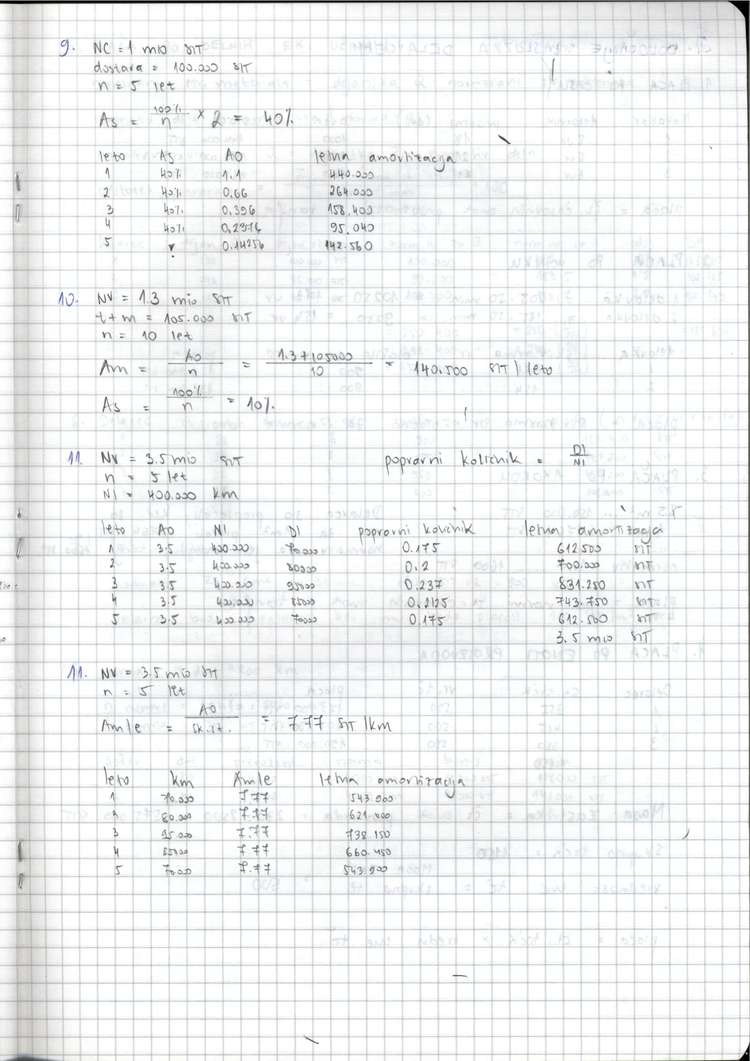 9. NC = 1 mio SIT
dostava = 100.000 SIT
n = 5 let
As = 100% / n × 2 = 40%
leto As AO letna amortizacija
1 40% 1.1 440.000
2 40% 0.66 264.000
3 40% 0.396 158.400
4 40% 0.2376 95.040
5 0.14256 142.560
10. NV = 1.3 mio SIT
t+m = 105.000 SIT
n = 10 let
Am = AO / n = 1.3 + 105000 / 10 = 140.500 SIT / leto
As = 100% / n = 10%
11. NV = 3.5 mio SIT popravni količnik = DI / NI
n = 5 let
NI = 400.000 km
leto AO NI DI popravni količnik letna amortizacija
1 3.5 400.000 70000 0.175 612.500 SIT
2 3.5 400.000 80000 0.2 700.000 SIT
3 3.5 400.000 95000 0.237 831.250 SIT
4 3.5 400.000 85000 0.2125 743.750 SIT
5 3.5 400.000 70000 0.175 612.500 SIT
3.5 mio SIT
11. NV = 3.5 mio SIT
n = 5 let
Amle = AO / sk.it. = 7.77 SIT / km
leto km Amle letna amortizacija
1 70.000 7.77 543.900
2 80.000 7.77 621.600
3 95.000 7.77 738.150
4 85000 7.77 660.450
5 70000 7.77 543.900